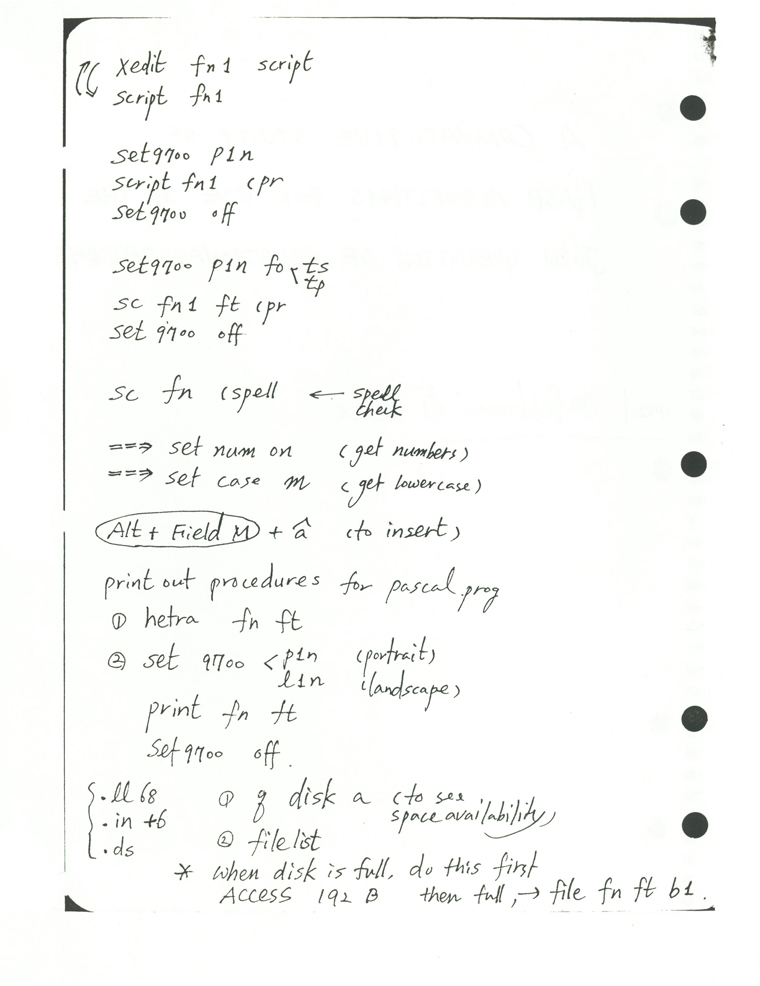 xedit fn1 script
script fn1
set9700 p1n
script fn1 cpr
set9700 off
set9700 p1n fo ts
tp
sc fn1 ft cpr
set 9700 off
sc fn (spell ← spell
check
===> set num on (get numbers)
===> set case m (get lowercase)
Alt + Field M + â (to insert)
print out procedures for pascal prog
① hetra fn ft
② set 9700 < p1n (portrait)
l1n (landscape)
print fn ft
set9700 off.
.ll 68 ① q disk a (to see
.in +6 space availability)
.ds ② filelist
* when disk is full, do this first
ACCESS 192 B then full, → file fn ft b1.